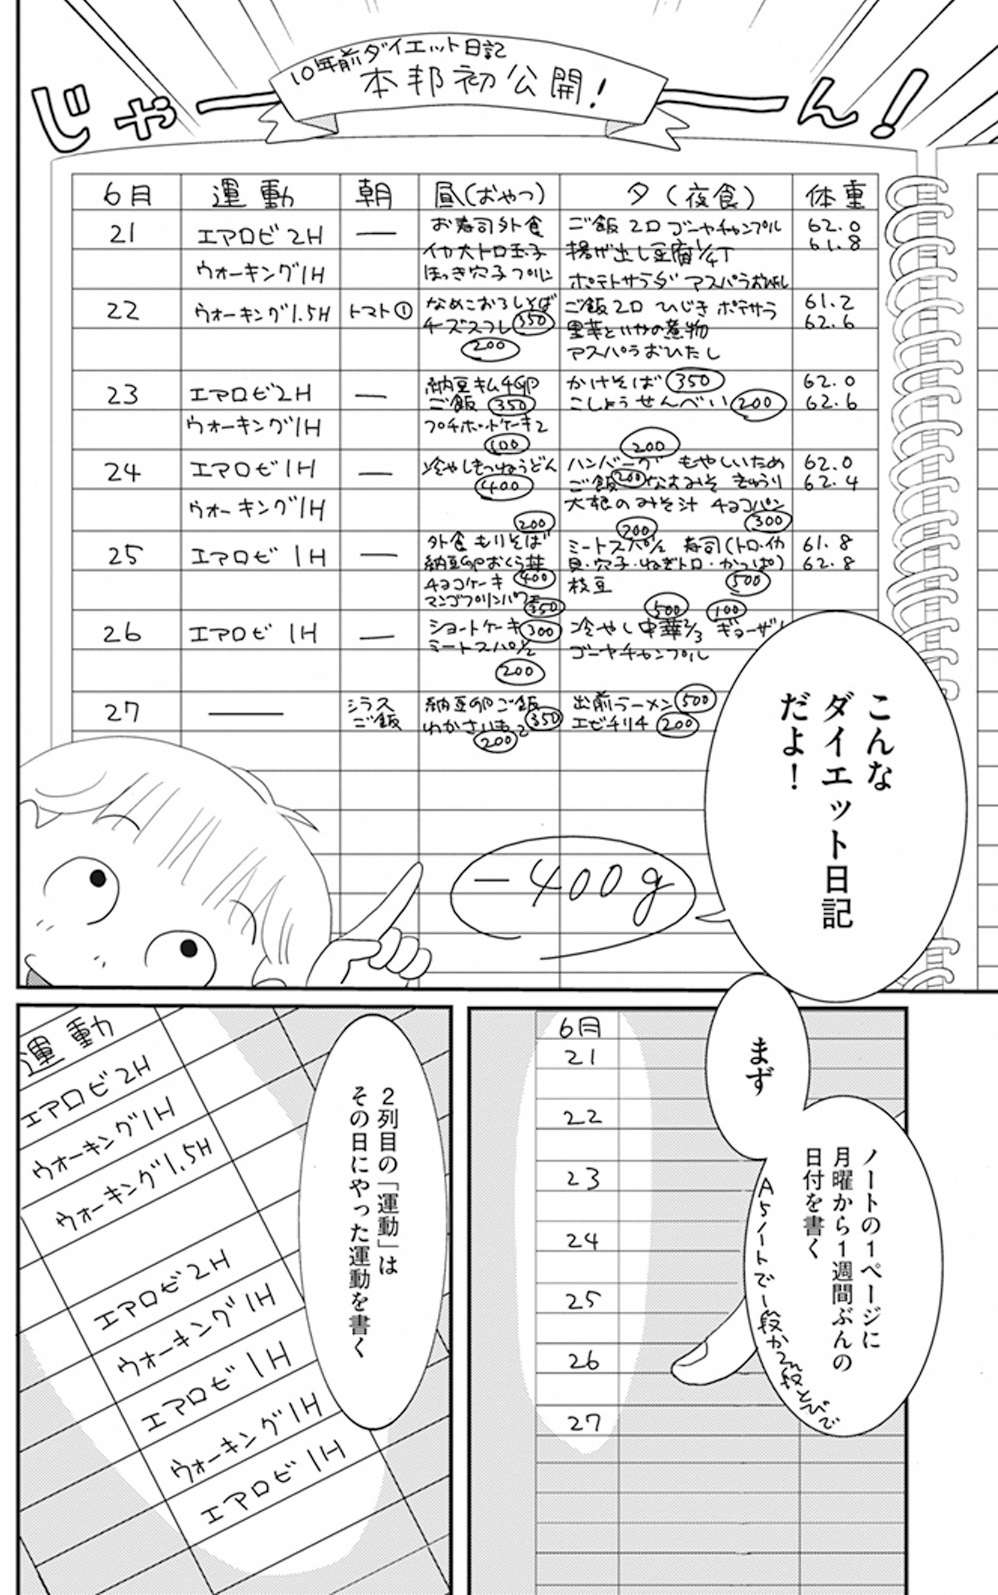 10年前ダイエット日記
本邦初公開!
じゃーーん!
6月 運動 朝 昼(おやつ) 夕(夜食) 体重
21 エアロビ2H — お寿司外食 ご飯2口 ゴーヤチャンプル 62.0
イカ大トロ玉子 揚げ出し豆腐1/4丁 61.8
ウォーキング1H ほっき穴子プリン ポテトサラダ アスパラおひたし
22 ウォーキング1.5H トマト① なめこおろしそば ご飯2口 ひじき ポテサラ 61.2
チーズスフレ 350 里芋といかの煮物 62.6
200 アスパラおひたし
23 エアロビ2H — 納豆キムチ卵 かけそば 350 62.0
ご飯 350 こしょうせんべい 200 62.6
ウォーキング1H プチホットケーキ2
100 200
24 エアロビ1H — 冷やしきつねうどん ハンバーグ もやしいため 62.0
400 ご飯 200 なすみそ きゅうり 62.4
ウォーキング1H 大根のみそ汁 チョコパン
200 200 300
25 エアロビ1H — 外食 もりそば ミートスパ1/2 寿司(トロ・イカ 61.8
納豆卵おくら丼 貝・穴子・ねぎトロ・かっぱ) 62.8
チョコケーキ 400 枝豆 500
マンゴプリンパフェ 350 500 100
26 エアロビ1H — ショートケーキ 300 冷やし中華2/3 ギョーザ
ミートスパ1/2 ゴーヤチャンプル
200
27 — シラス 納豆卵ご飯 出前ラーメン 500
ご飯 わかさいも2 350 エビチリ4 200
200
−400g
こんな
ダイエット日記
だよ!
まず
ノートの1ページに
月曜から1週間ぶんの
日付を書く
A5ノートで1段か2段とびで
6月
21
22
23
24
25
26
27
2列目の「運動」は
その日にやった運動を書く
運動
エアロビ2H
ウォーキング1H
ウォーキング1.5H
エアロビ2H
ウォーキング1H
エアロビ1H
ウォーキング1H
エアロビ1H